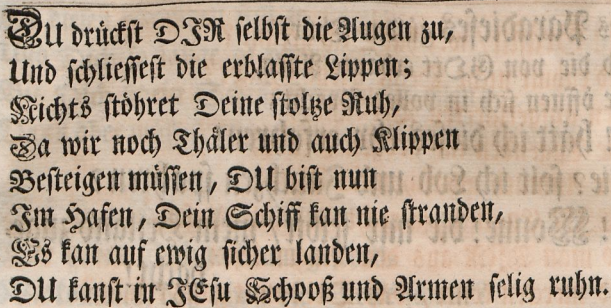 DU drückst DJR selbst die Augen zu,
Und schliessest die erblasste Lippen;
Nichts stöhret Deine stoltze Ruh,
Da wir noch Thäler und auch Klippen
Besteigen müssen, DU bist nun
Jm Hafen, Dein Schiff kan nie stranden,
Es kan auf ewig sicher landen,
DU kanst in JEsu Schooß und Armen selig ruhn.